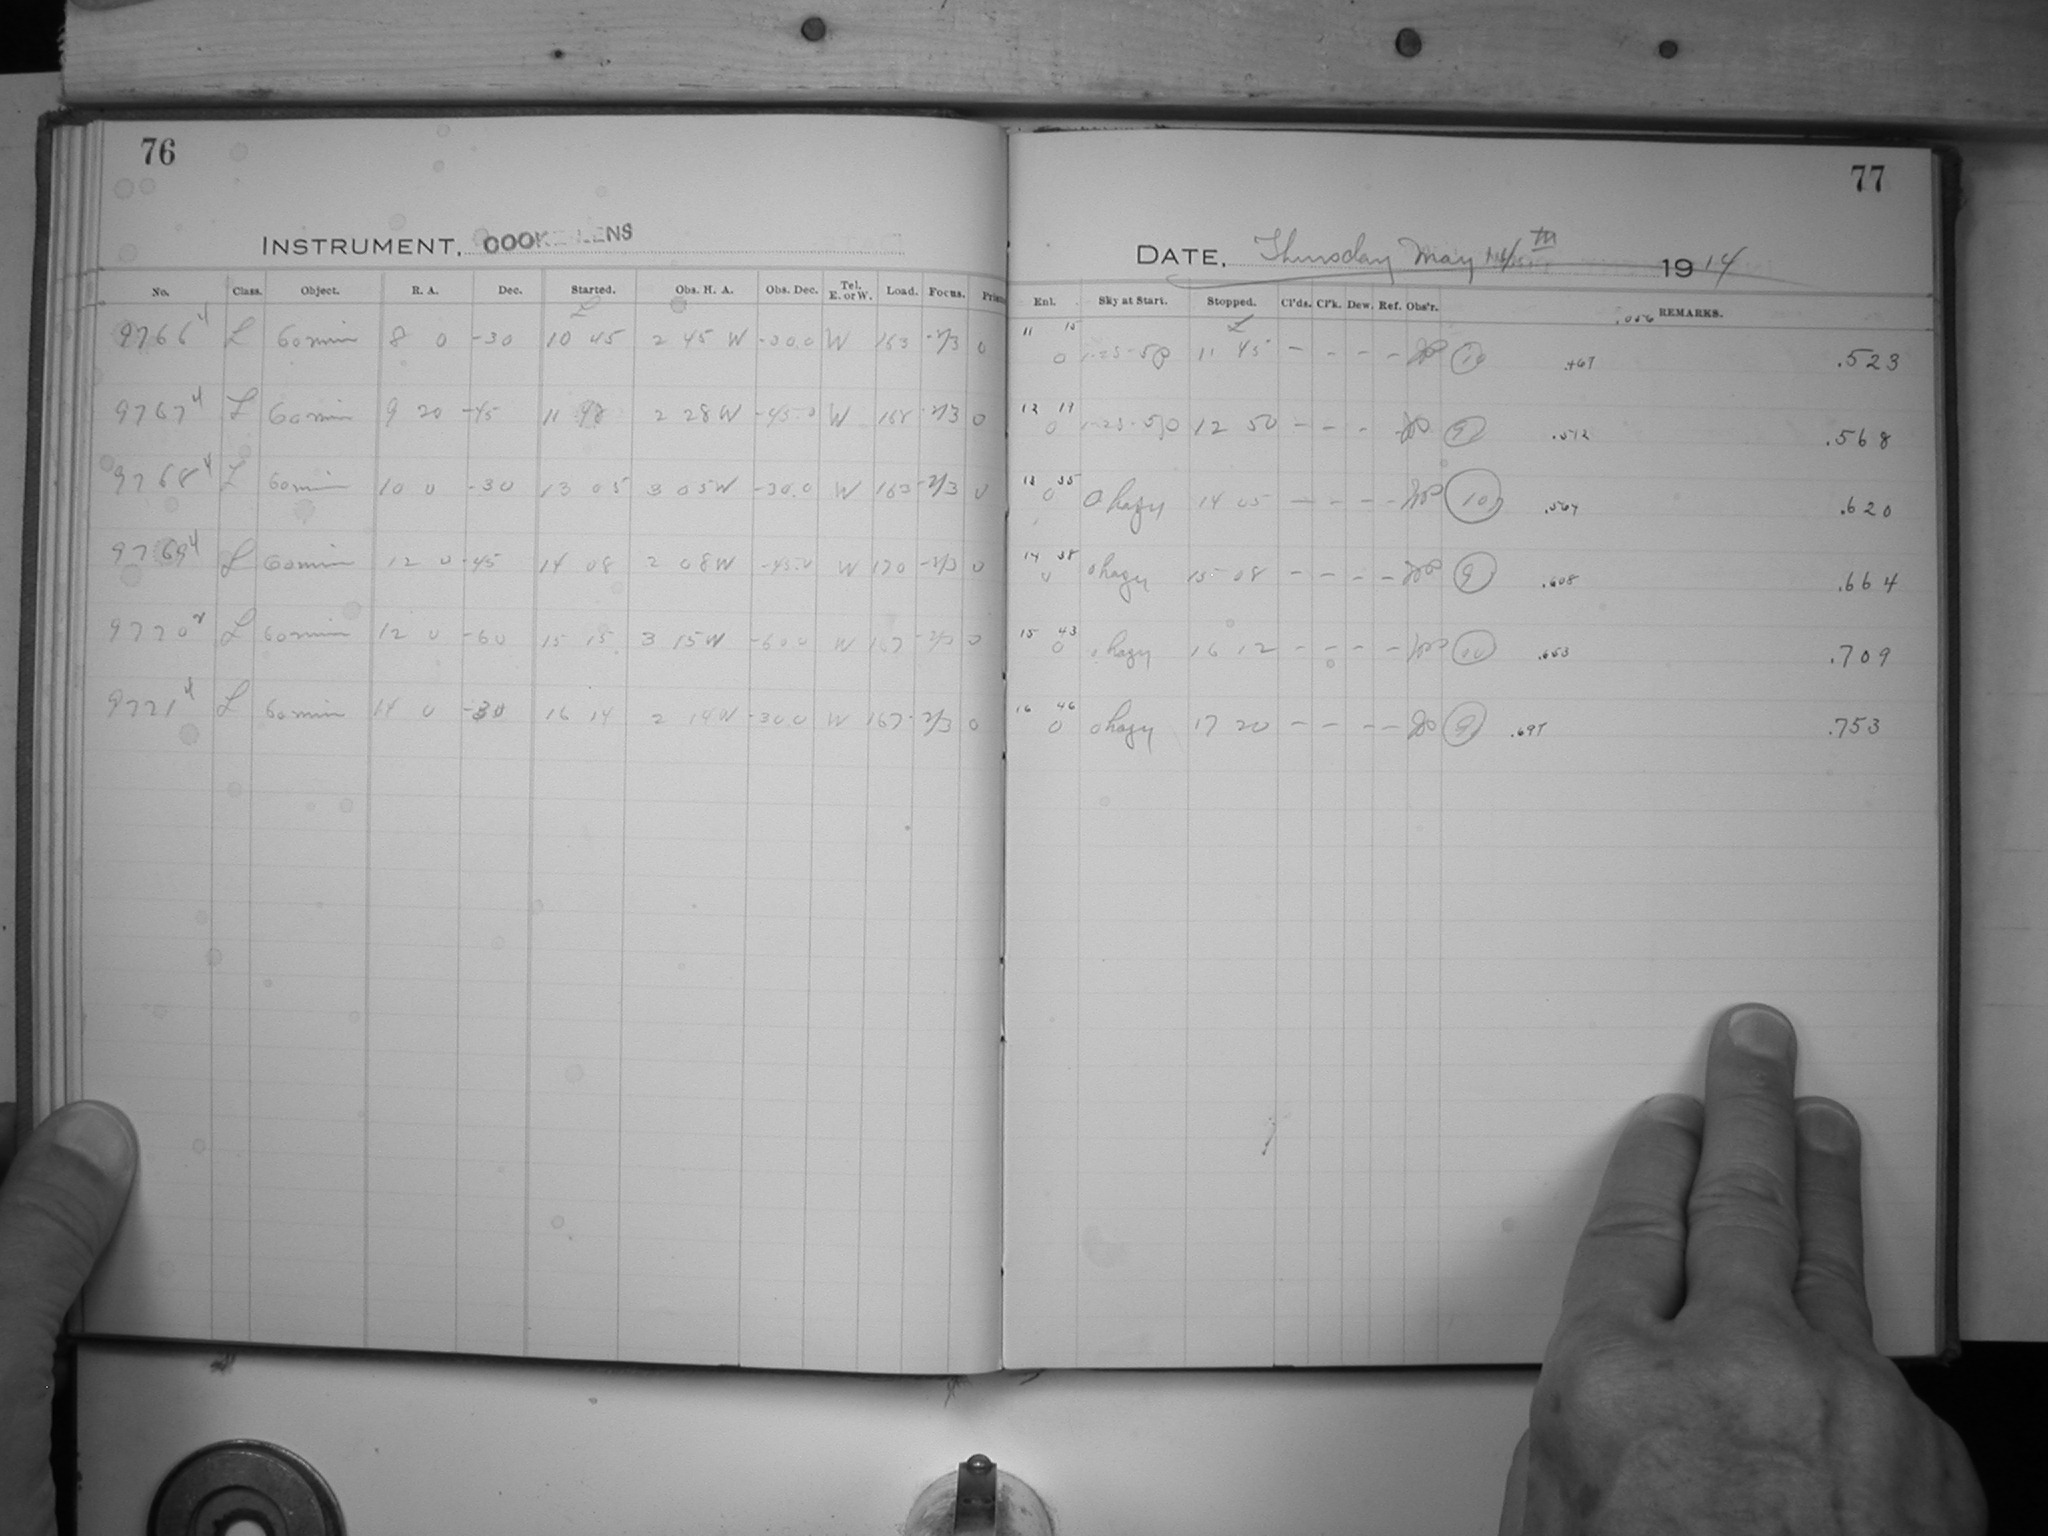 76
INSTRUMENT, COOKE LENS
No. Class. Object. R. A. Dec. Started. Obs. H. A. Obs. Dec. Tel. E. or W. Load. Focus. Prism
9766 4 L 60 min 8 0 -30 10 45 2 45 W -30.0 W 163 -2/3 0
9767 4 L 60 min 9 20 -45 11 48 2 28 W -45.0 W 168 -2/3 0
9768 4 L 60 min 10 0 -30 13 05 3 05 W -30.0 W 163 -2/3 0
9769 4 L 60 min 12 0 -45 14 08 2 08 W -45.0 W 170 -2/3 0
9770 L 60 min 12 0 -60 15 15 3 15 W -60.0 W 167 -2/3 0
9771 4 L 60 min 14 0 -30 16 14 2 14 W -30.0 W 167 -2/3 0
77
DATE, Thursday May 14th 1914
Ent. Sky at Start. Stopped. Cl'ds. Cl'k. Dew. Ref. Obs'r. .056 REMARKS.
11 15 0 11 45 - - - - 10 .467 .523
12 19 0 12 50 - - - 9 .512 .568
13 35 0 0 hazy 14 05 - - - - 10 .564 .620
14 38 0 0 hazy 15 08 - - - - 9 .608 .664
15 43 0 0 hazy 16 12 - - - - 10 .653 .709
16 46 0 0 hazy 17 20 - - - - 9 .697 .753